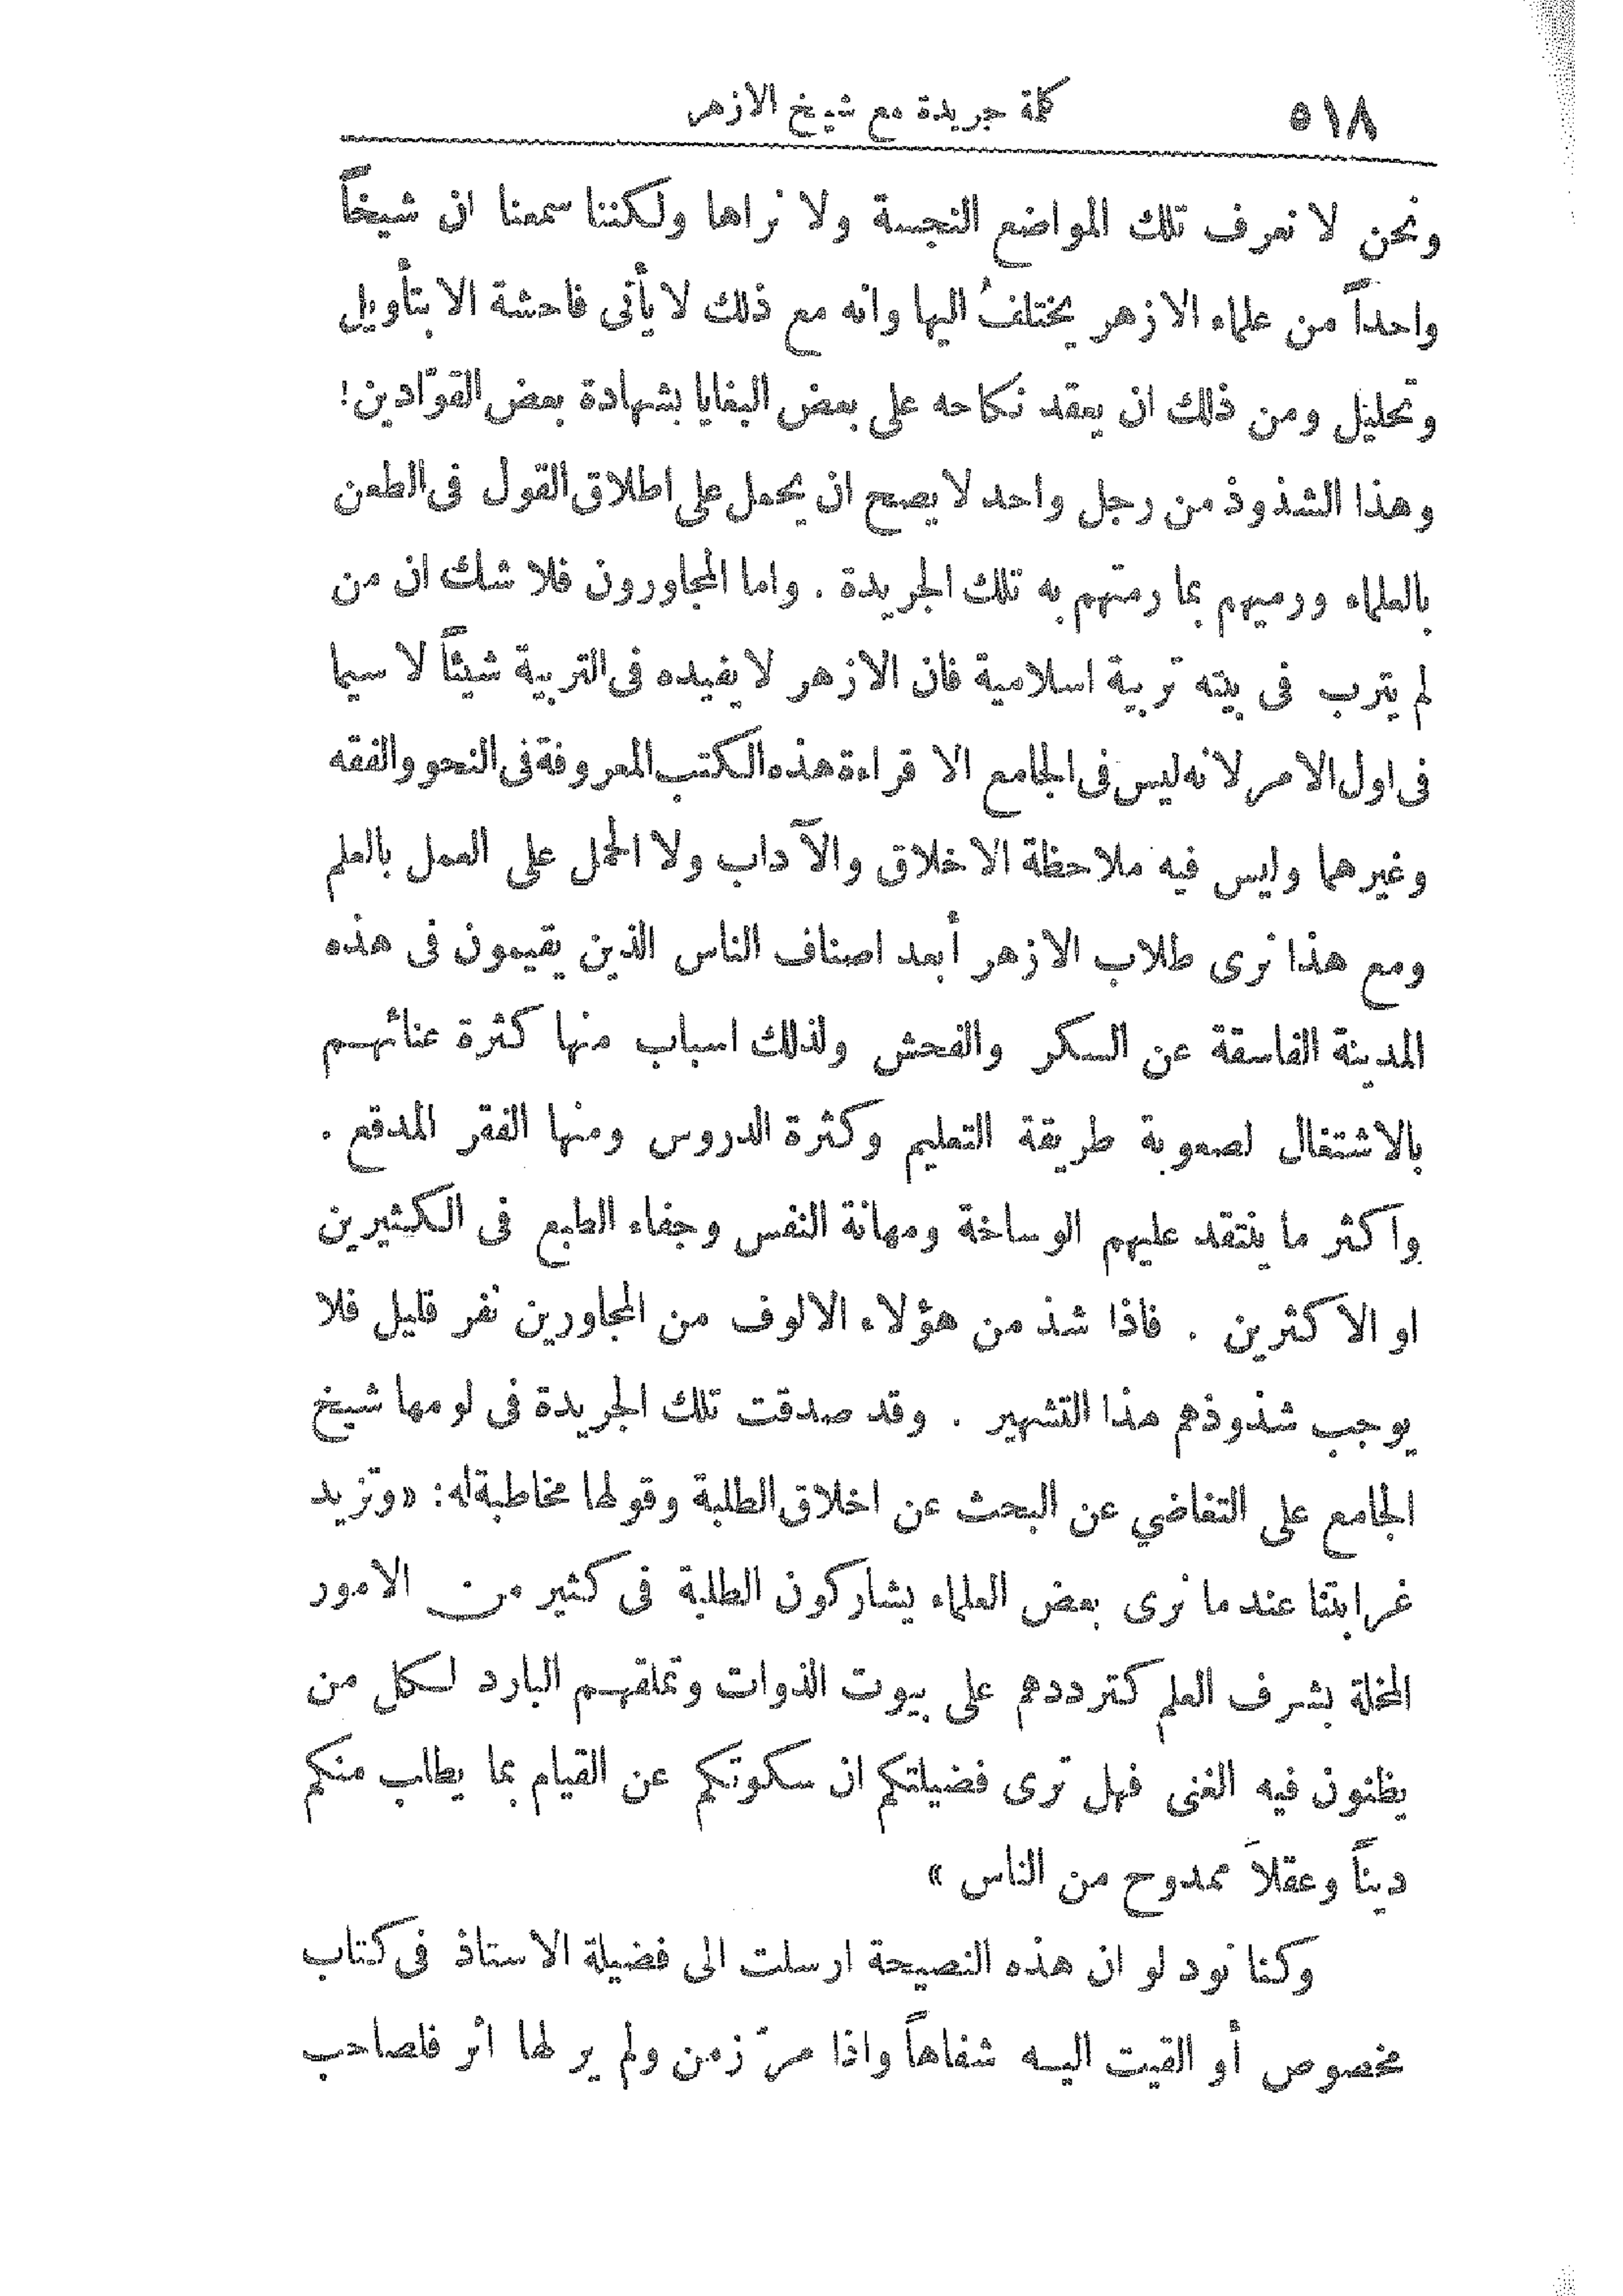 ٥١٨
كلمة جريدة مع شيخ الازهر
ونحن لا نعرف تلك المواضع النجسة ولا نراها ولكننا سمعنا ان شيخاً
واحداً من علماء الازهر يختلفُ اليها وانه مع ذلك لا يأتى فاحشة الا بتأويل
وتحليل ومن ذلك ان يعقد نكاحه على بعض البغايا بشهادة بعض القوّادين!
وهذا الشذوذ من رجل واحد لا يصح ان يحمل على اطلاق القول فى الطعن
بالعلماء ورميهم بما رمتهم به تلك الجريدة . واما المجاورون فلا شك ان من
لم يترب فى بيته تربية اسلامية فان الازهر لا يفيده فى التربية شيئاً لا سيما
فى اول الامر لانه ليس فى الجامع الا قراءة هذه الكتب المعروفة فى النحو والفقه
وغيرهما وليس فيه ملاحظة الاخلاق والآداب ولا الحمل على العمل بالعلم
ومع هذا نرى طلاب الازهر أبعد اصناف الناس الذين يقيمون فى هذه
المدينة الفاسقة عن السكر والفحش ولذلك اسباب منها كثرة عنائهم
بالاشتغال لصعوبة طريقة التعليم وكثرة الدروس ومنها الفقر المدقع .
واكثر ما ينتقد عليهم الوساخة ومهانة النفس وجفاء الطبع فى الكثيرين
او الاكثرين . فاذا شذ من هؤلاء الالوف من المجاورين نفر قليل فلا
يوجب شذوذهم هذا التشهير . وقد صدقت تلك الجريدة فى لومها شيخ
الجامع على التغاضي عن البحث عن اخلاق الطلبة وقولها مخاطبة له: «وتزيد
غرابتنا عند ما نرى بعض العلماء يشاركون الطلبة فى كثير من الامور
المخلة بشرف العلم كترددهم على بيوت الذوات وتملقهم البارد لكل من
يظنون فيه الغنى فهل ترى فضيلتكم ان سكوتكم عن القيام بما يطلب منكم
ديناً وعقلاً ممدوح من الناس »
وكنا نود لو ان هذه النصيحة ارسلت الى فضيلة الاستاذ فى كتاب
مخصوص أو القيت اليه شفاهاً واذا مرّ زمن ولم ير لها اثر فلصاحب